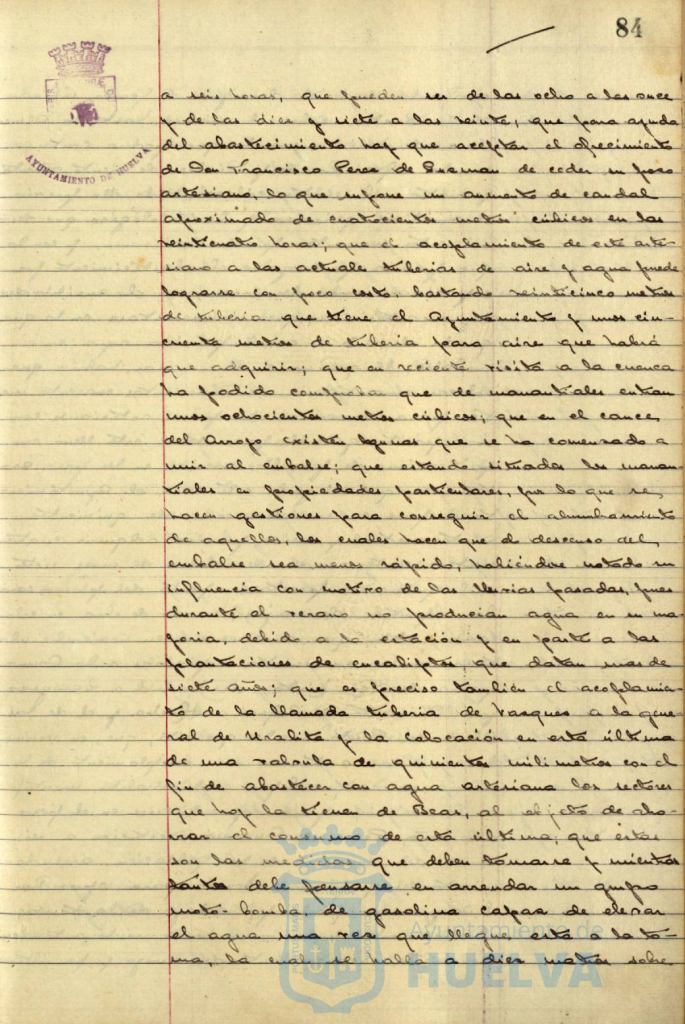 84
AYUNTAMIENTO DE HUELVA
a seis horas, que pueden ser de las ocho a las once
y de las diez y siete a las veinte; que para ayuda
del abastecimiento hay que aceptar el ofrecimiento
de Don Francisco Perez de Guzman de ceder su pozo
artesiano, lo que supone un aumento de caudal
aproximado de cuatrocientos metros cúbicos en las
veinticuatro horas; que el acoplamiento de este arte-
siano a las actuales tuberias de aire y agua puede
lograrse con poco costo, bastando veinticinco metros
de tuberia que tiene el Ayuntamiento y unos cin-
cuenta metros de tuberia para aire que habrá
que adquirir; que en reciente visita a la cuenca
ha podido comprobar que de manantiales entran
unos ochocientos metros cúbicos; que en el cauce
del Arroyo existen lagunas que se ha comenzado a
unir al embalse; que estando situados los manan-
tiales en propiedades particulares, por lo que se
hacen gestiones para conseguir el alumbramiento
de aquellos, los cuales hacen que el descenso del
embalse sea menos rápido, habiéndose notado su
influencia con motivo de las lluvias pasadas, pues
durante el verano no producian agua en su ma-
yoria, debido a la estación y en parte a las
plantaciones de eucaliptos, que datan mas de
siete años; que es preciso también el acoplamien-
to de la llamada tuberia de Vazques a la gene-
ral de Uralita y la colocación en esta última
de una valvula de quinientos milimetros con el
fin de abastecer con agua artesiana los sectores
que hoy la tienen de Beas, al objeto de aho-
rrar el consumo de esta última; que estas
son las medidas que deben tomarse y mientras
tanto debe pensarse en arrendar un grupo
moto-bomba, de gasolina capaz de elevar
el agua una vez que llegue esta a la to-
ma, la cual se halla a diez metros sobre
Ayuntamiento de
HUELVA